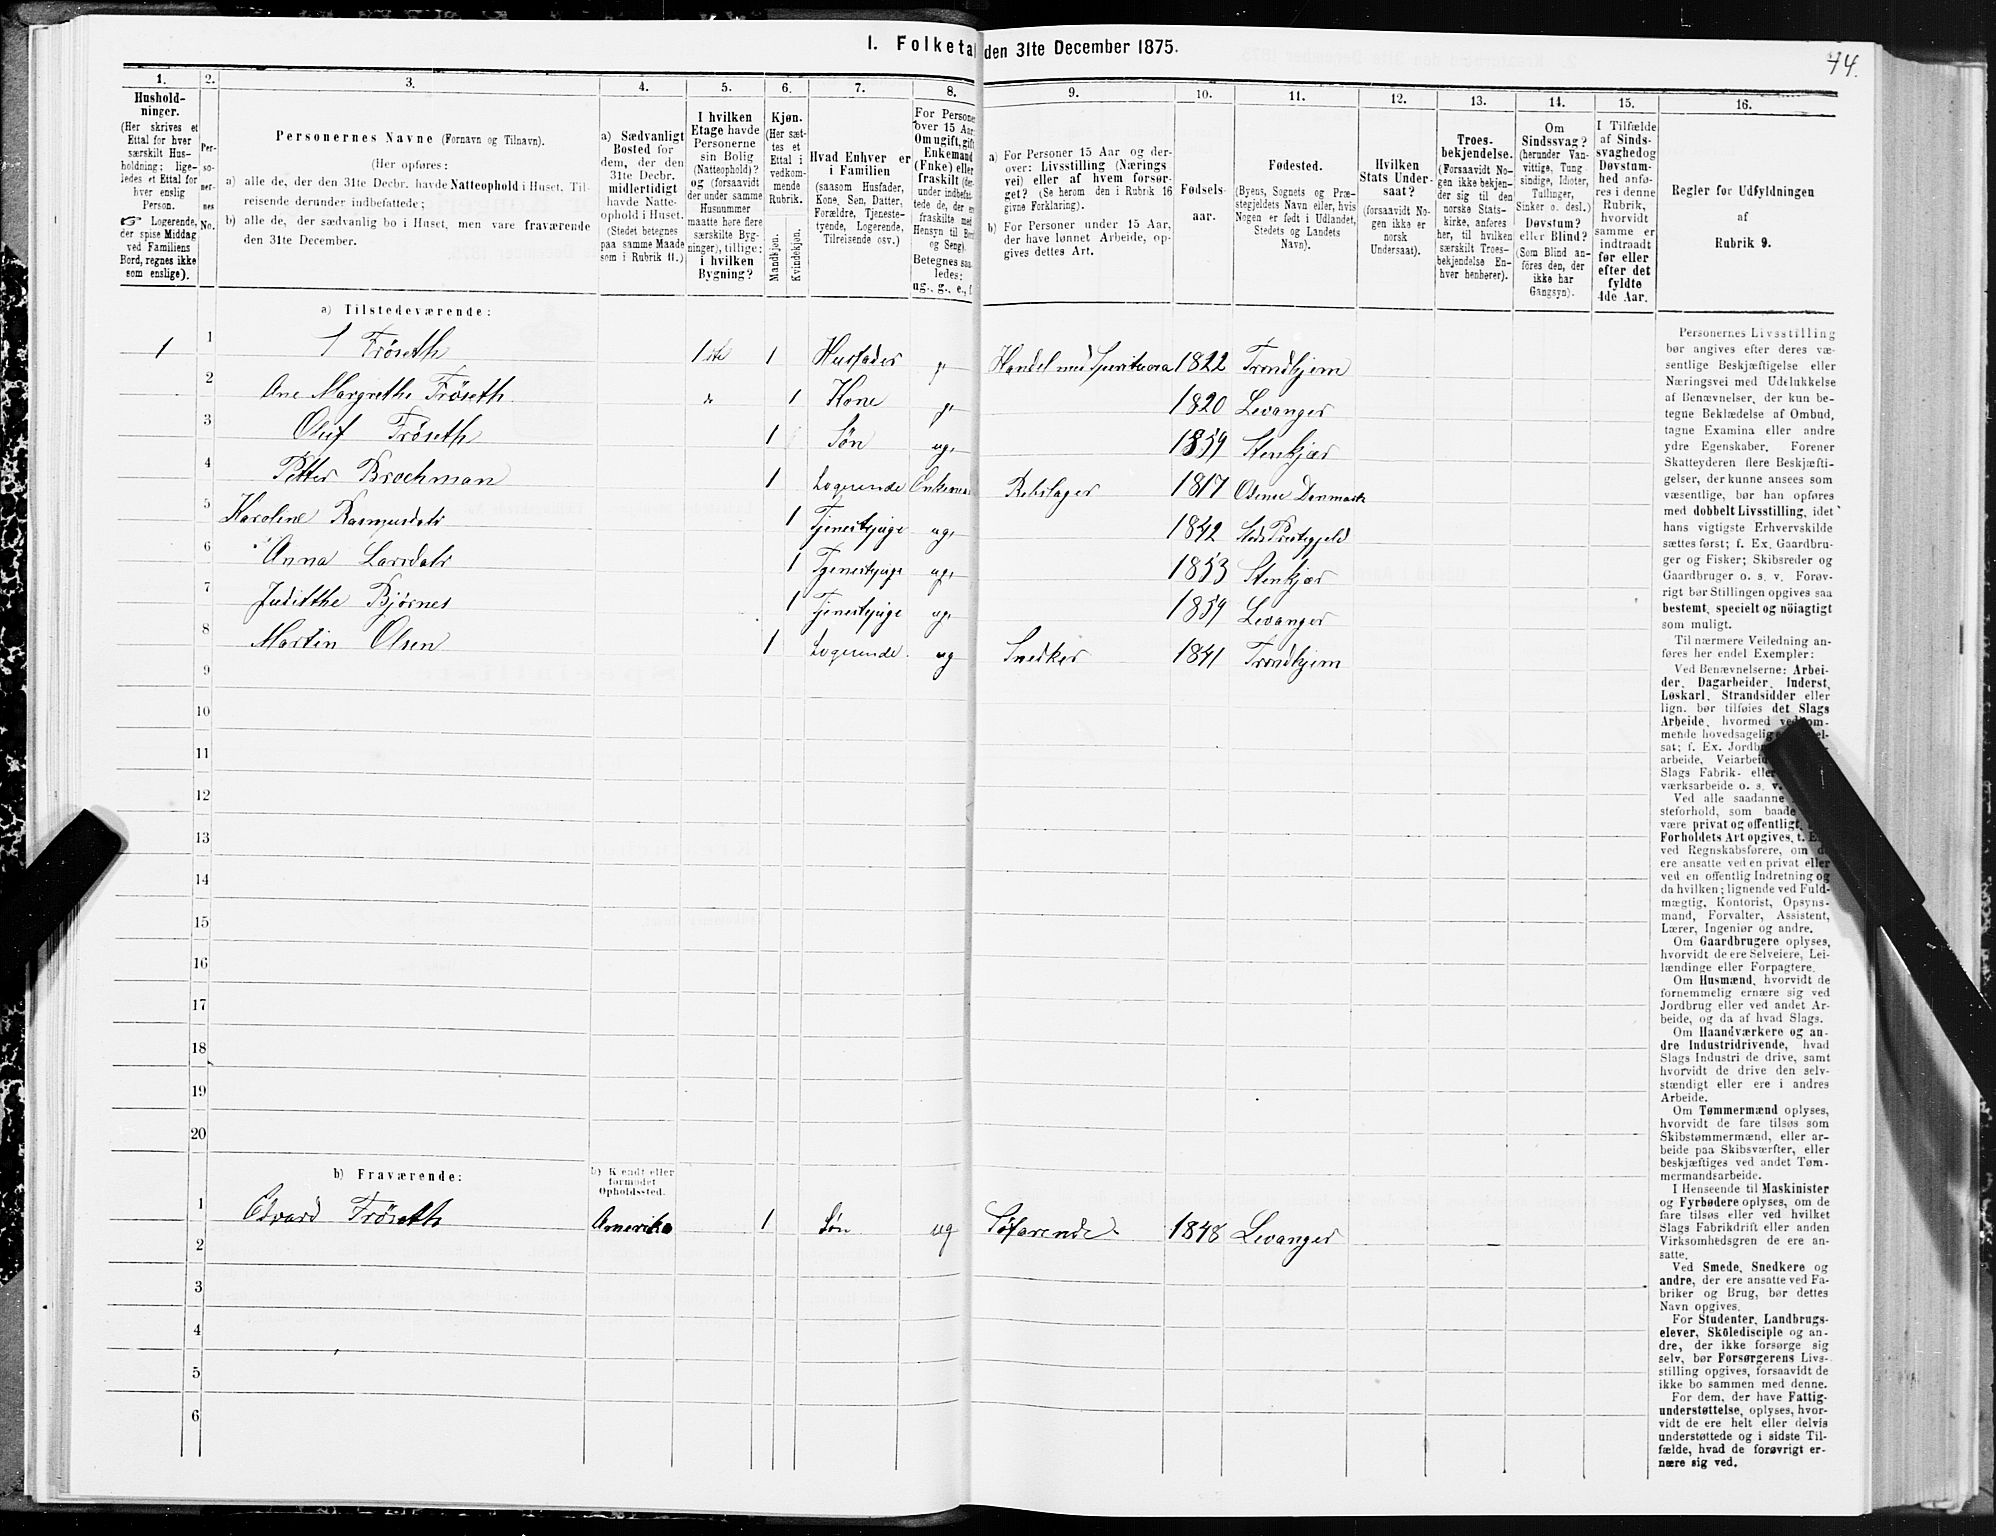 I. Folketal den 31te December 1875.
44.
1. 2. 3. 4. 5. 6. 7. 8. 9. 10. 11. 12. 13. 14. 15. 16.
Hushold-
ninger.
(Her skrives et
Ettal for hver
særskilt Hus-
holdning; lige-
ledes et Ettal for
hver enslig
Person.
☞ Logerende,
der spise Middag
ved Familiens
Bord, regnes ikke
som enslige).
Per-
so-
ner-
nes
No.
Personernes Navne (Fornavn og Tilnavn).
(Her opføres:
a) alle de, der den 31te Decbr. havde Natteophold i Huset, Til-
reisende derunder indbefattede;
b) alle de, der sædvanlig bo i Huset, men vare fraværende
den 31te December.
a) Sædvanligt
Bosted for
dem, der den
31te Decbr.
midlertidigt
havde Natte-
ophold i Huset.
(Stedet betegnes
paa samme Maade
som i Rubrik 11.)
I hvilken
Etage havde
Personerne
sin Bolig
(Natteophold)?
og (forsaavidt
der under samme
Husnummer
maatte høre flere
særskilte Byg-
ninger), tillige:
i hvilken
Bygning?
Kjøn.
(Her sæt-
tes et
Ettal i
vedkom-
mende
Rubrik.
Mandkjøn.
Kvindekjøn.
Hvad Enhver er
i Familien
(saasom Husfader,
Kone, Søn, Datter,
Forældre, Tjeneste-
tyende, Logerende,
Tilreisende osv.)
For Persone
over 15 Aar
Om ugift, gift
Enkemand
(Enke) eller
fraskilt (der-
under indbefat-
tede de, der er
fraskilte med
Hensyn til Bord
og Seng).
Betegnes saa-
ledes:
ug., g., e., f.
a) For Personer 15 Aar og der-
over: Livsstilling (Nærings
vei) eller af hvem forsør-
get? (Se herom den i Rubrik 16
givne Forklaring).
b) For Personer under 15 Aar,
der have lønnet Arbeide, op-
gives dettes Art.
Fødsels-
aar.
Fødested.
(Byens, Sognets og Præ-
stegjeldets Navn eller, hvis
Nogen er født i Udlandet,
Stedets og Landets
Navn).
Hvilken
Stats Under-
saat?
(forsaavidt No-
gen ikke er
norsk
Undersaat).
Troes-
bekjendelse.
(Forsaavidt No-
gen ikke bekjen-
der sig til den
norske Stats-
kirke, anføres
her, til hvilken
særskilt Troes-
bekjendelse En-
hver henhører).
Om
Sindssvag?
(herunder Van-
vittige, Tung-
sindige, Idioter,
Tullinger,
Sinker o. desl.)
Døvstum?
eller Blind?
(Som Blind an-
føres den, der
ikke har
Gangsyn).
I Tilfælde
af Sinds-
svaghed og
Døvstum-
hed anfø-
res i denne
Rubrik,
hvorvidt
samme er
indtraadt
før eller
efter det
fyldte
4de Aar.
Regler for Udfyldningen
af
Rubrik 9.
a) Tilstedeværende:
1 1 Frøseth 1ste 1 Husfader g. Handel med Spirituosa 1822 Trondhjem
2 Ane Margrethe Frøseth d 1 Kone g. 1820 Levanger
3 Oluf Frøseth 1 Søn ug. 1859 Stenkjær
4 Petter Brochman 1 Logerende Enkemand Rebslager 1817 Odense Danmark
5 Karoline Rasmusdatr 1 Tjenestepige ug. 1842 Præstegjeld
6 Anna Larsdatr 1 Tjenestepige ug. 1853 Stenkjær
7 Judithe Bjørnes 1 Tjenestepige ug. 1859 Levanger
8 Martin Olsen 1 Logerende ug Snedker 1841 Trondhjem
9
10
11
12
13
14
15
16
17
18
19
20
b) Fraværende:
b) Kjendt eller
formodet
Opholdssted.
1 Edvard Frøseth Amerika 1 Søn ug Søfarende 1848 Levanger
2
3
4
5
6
Personernes Livsstilling
bør angives efter deres væ-
sentlige Beskjæftigelse eller
Næringsvei med Udelukkelse
af Benævnelser, der kun be-
tegne Beklædelse af Ombud,
tagne Examina eller andre
ydre Egenskaber. Forener
Skatteyderen flere Beskjæfti-
gelser, der kunne ansees som
væsentlige, bør han opføres
med dobbelt Livsstilling, idet
hans vigtigste Erhvervskilde
sættes først; f. Ex. Gaardbru-
ger og Fisker; Skibsreder og
Gaardbruger o. s. v. Forøv-
rigt bør Stillingen opgives saa
bestemt, specielt og nöiagtigt
som muligt.
Til nærmere Veiledning an-
føres her endel Exempler:
Ved Benævnelserne: Arbei-
der, Dagarbeider, Inderst,
Løskarl, Strandsidder eller
lign. bør tilføies det Slags
Arbeide, hvormed vedkom-
mende hovedsagelig
sat; f. Ex.
arbeide,
Slags Fabrik- eller
værksarbeide o. s. v.
Ved alle saadanne
steforhold, som baade
være privat og offentligt,
Forholdets Art opgives, t. Ex.
ved Regnskabsførere, om de
ere ansatte ved en privat eller
ved en offentlig Indretning og
da hvilken; lignende ved Fuld-
mægtig, Kontorist, Opsyns-
mand, Forvalter, Assistent,
Lærer, Ingeniør og andre.
Om Gaardbrugere oplyses,
hvorvidt de ere Selveiere, Lei-
lændinge eller Forpagtere.
Om Husmænd, hvorvidt de
fornemmelig ernære sig ved
Jordbrug eller ved andet Ar-
beide, og da af hvad Slags.
Om Haandværkere og an-
dre Industridrivende, hvad
Slags Industri de drive, samt
hvorvidt de drive den selv-
stændigt eller ere i andres
Arbeide.
Om Tømmermænd oplyses,
hvorvidt de fare tilsøs som
Skibstømmermænd, eller ar-
beide paa Skibsværfter, eller
beskjæftiges ved andet Tøm-
mermandsarbeide.
I Henseende til Maskinister
og Fyrbødere oplyses, om de
fare tilsøs eller ved hvilket
Slags Fabrikdrift eller anden
Virksomhedsgren de ere an-
satte.
Ved Smede, Snedkere og
andre, der ere ansatte ved Fa-
briker og Brug, bør dettes
Navn opgives.
For Studenter, Landbrugs-
elever, Skôledisciple og an-
dre, der ikke forsørge sig
selv, bør Forsørgerens Livs-
stilling opgives, forsaavidt de
ikke bo sammen med denne.
For dem, der have Fattig-
understøttelse, oplyses, hvor-
vidt de ere helt eller delvis
understøttede og i sidste Til-
fælde, hvad de forøvrigt er-
nære sig ved.